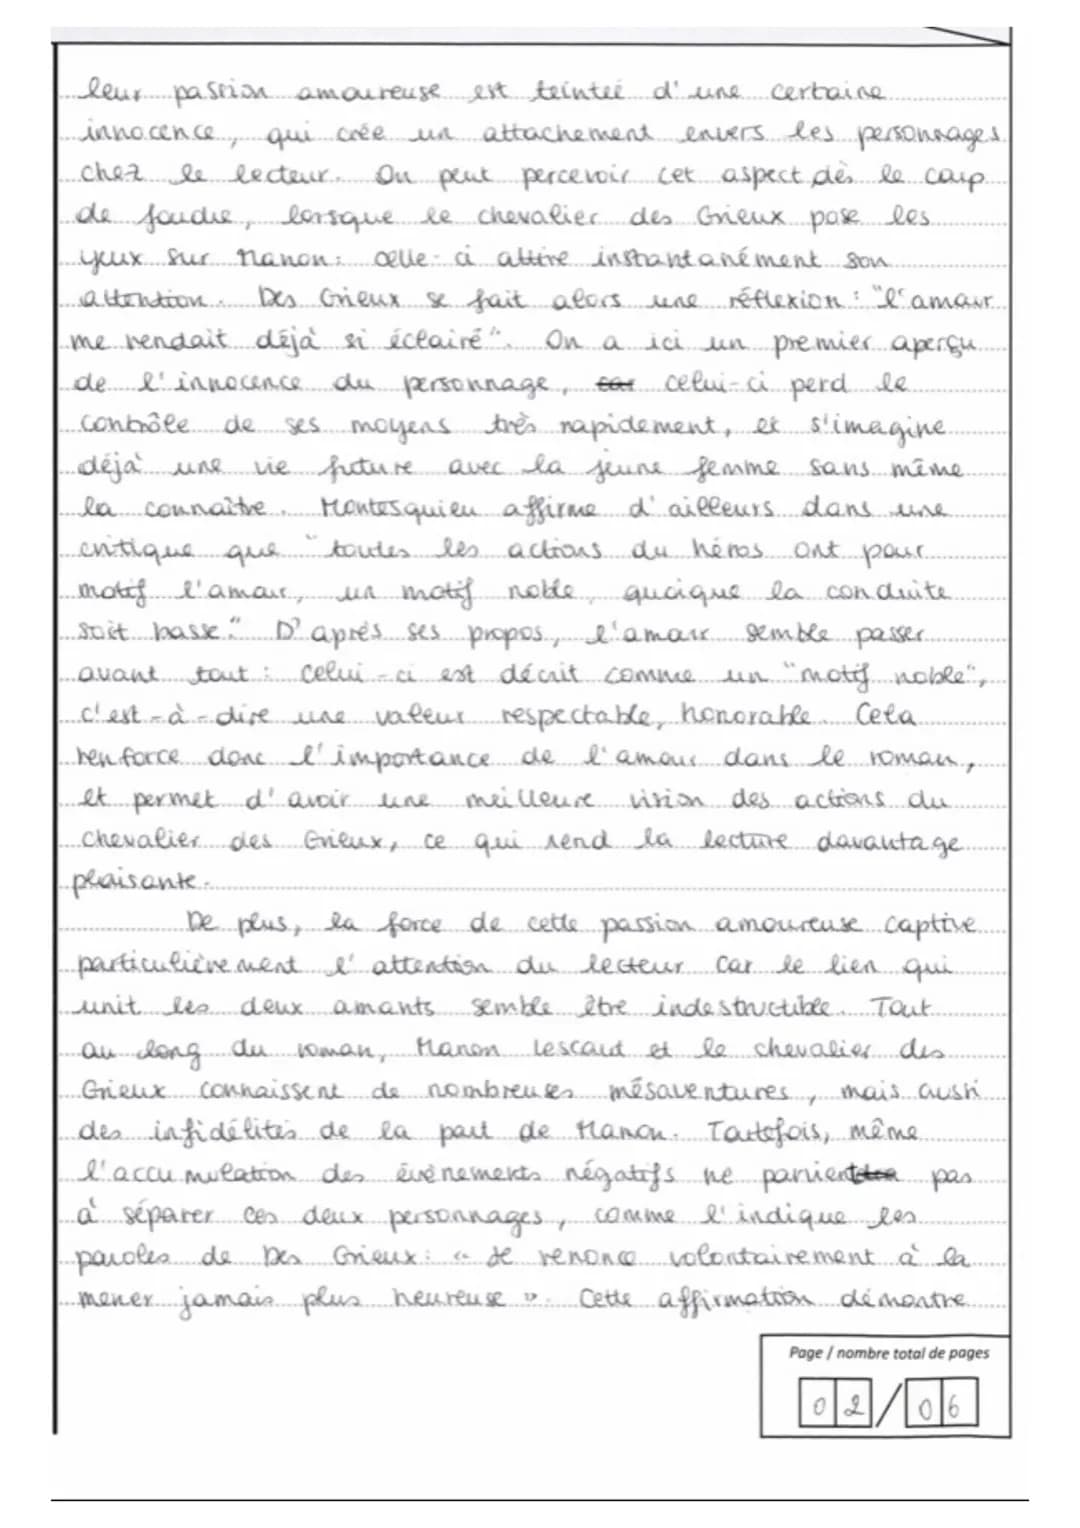 leur passion amoureuse est teintée d'une certaine
innocence, qui crée un attachement envers les personnages
chez le lecteur. On peut percevoir cet aspect dès le coup
de foudre, lorsque le chevalier des Grieux pose les
yeux sur Manon : celle-ci attire instantanément son
attention. Des Grieux se fait alors une réflexion : "l'amour
me rendait déjà si éclairé". On a ici un premier aperçu
de l'innocence du personnage, car celui-ci perd le
contrôle de ses moyens très rapidement, et s'imagine
déjà une vie future avec la jeune femme sans même
la connaître. Montesquieu affirme d'ailleurs dans une
critique que "toutes les actions du héros ont pour
motif l'amour, un motif noble, quoique la conduite
soit basse." D'après ses propos, l'amour semble passer
avant tout : celui-ci est décrit comme un "motif noble",
c'est-à-dire une valeur respectable, honorable. Cela
renforce donc l'importance de l'amour dans le roman,
et permet d'avoir une meilleure vision des actions du
chevalier des Grieux, ce qui rend la lecture davantage
plaisante.
De plus, la force de cette passion amoureuse captive
particulièrement l'attention du lecteur car le lien qui
unit les deux amants semble être indestructible. Tout
au long du roman, Manon Lescaut et le chevalier des
Grieux connaissent de nombreuses mésaventures, mais aussi
des infidélités de la part de Manon. Toutefois, même
l'accumulation des évènements négatifs ne parvient pas
à séparer ces deux personnages, comme l'indique les
paroles de Des Grieux : « Je renonce volontairement à la
mener jamais plus heureuse ». Cette affirmation démontre
Page / nombre total de pages
02/06